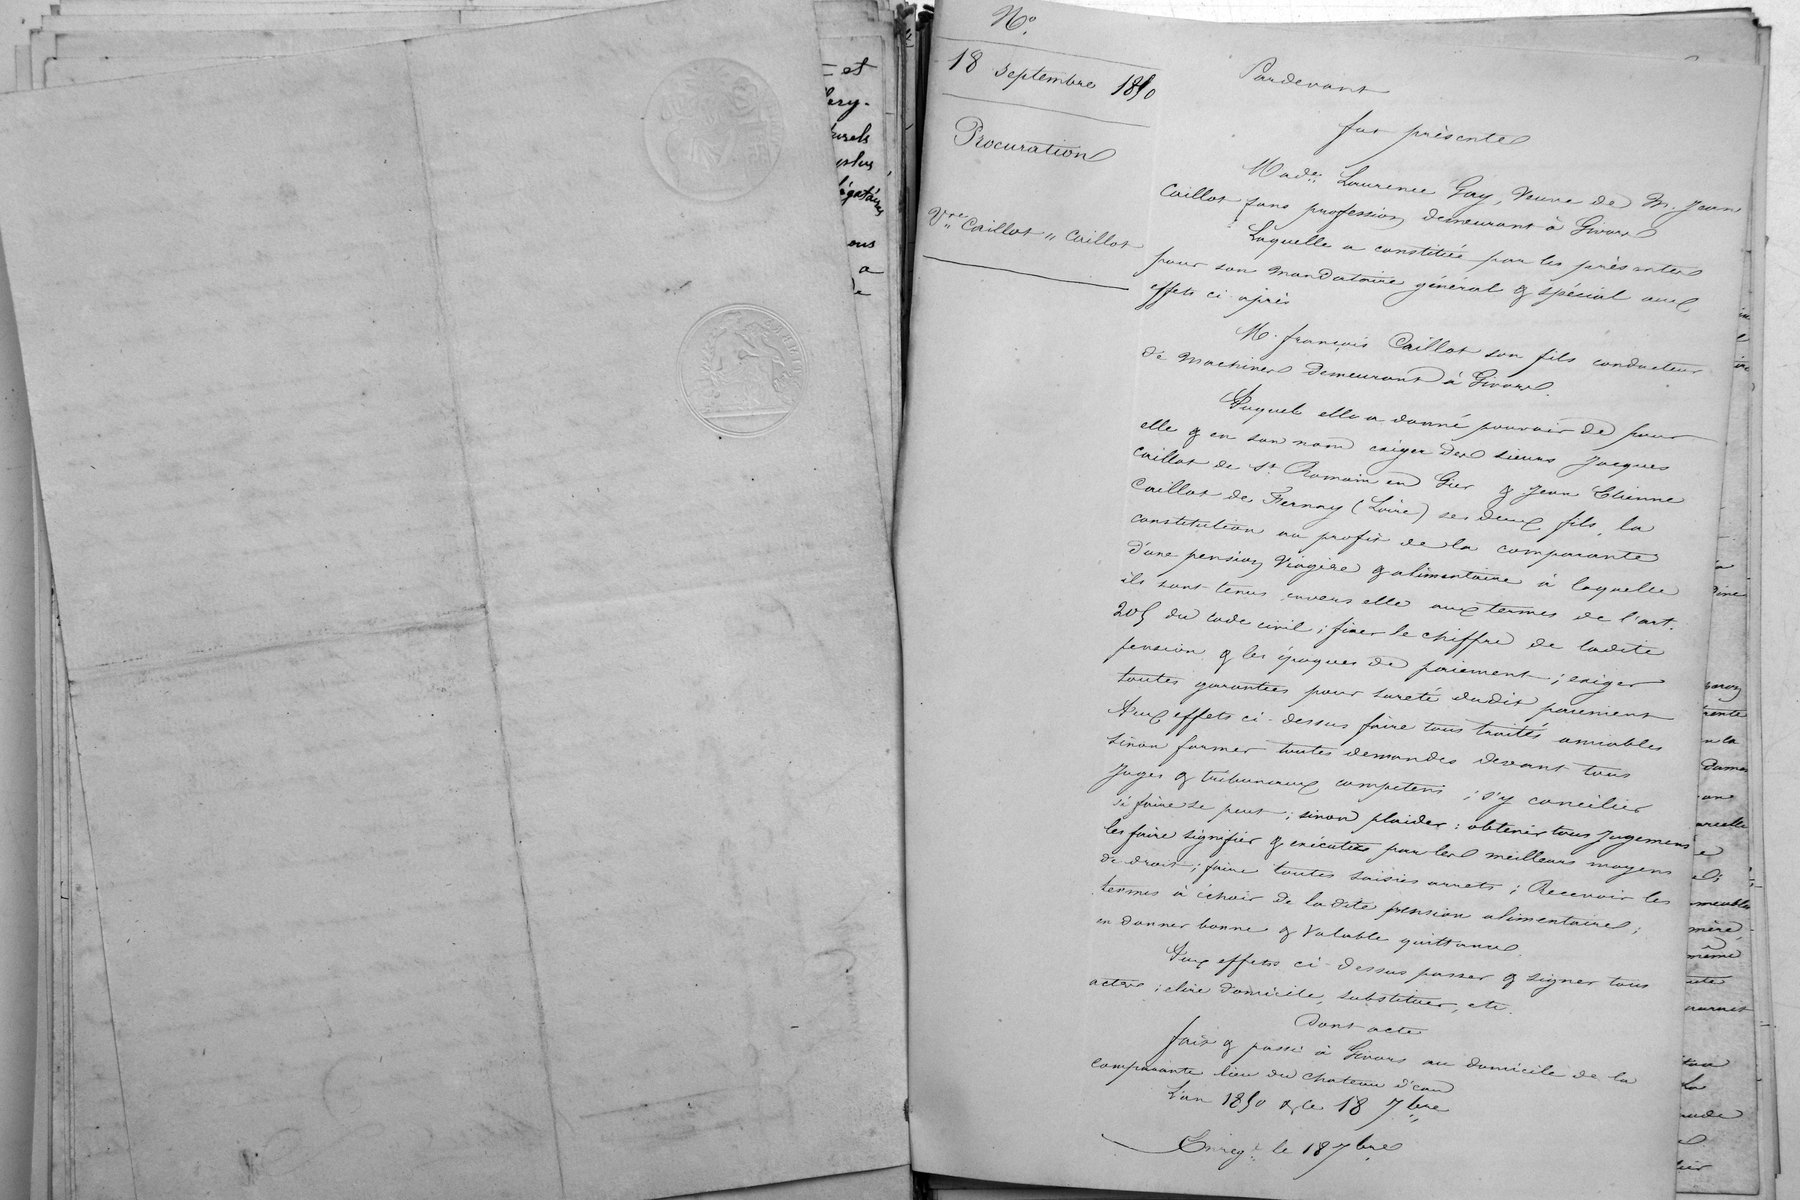 N.o
18 septembre 1850
Procuration
Vve Caillot " Caillot
Pardevant
fut présente
Made. Laurence Gay, Veuve de M. Jean
Caillot sans profession demeurant à Givors
Laquelle a constitué par les présentes
pour son mandataire général & spécial aux
effets ci-après
M. françois Caillot son fils conducteur
de machines demeurant à Givors.
Duquel elle a donné pouvoir de pour
elle & en son nom exiger des sieurs Jacques
Caillot de St Romain en Gier & Jean Etienne
Caillot de Fernay (Loire) ses deux fils, la
constitution au profit de la comparante
d'une pension viagère & alimentaire à laquelle
ils sont tenus envers elle aux termes de l'art.
205 du code civil ; fixer le chiffre de ladite
pension & les époques de paiement ; exiger
toutes garanties pour sureté dudit paiement
Aux effets ci-dessus faire tous traités amiables
sinon former toutes demandes devant tous
Juges & tribunaux competens ; s'y concilier
si faire se peut ; sinon plaider ; obtenir tous Jugemens
les faire signifier & exécuter par les meilleurs moyens
de droit ; faire toutes saisies arrets ; Recevoir les
termes à échoir de ladite pension alimentaire ;
en donner bonne & valable quittance.
Aux effets ci-dessus passer & signer tous
actes ; élire domicile, substituer, etc.
Dont acte
fait & passé à Givors au domicile de la
comparante lieu du chateau d'eau
L'an 1850 & le 18 7bre
Enregt. le 18 7bre